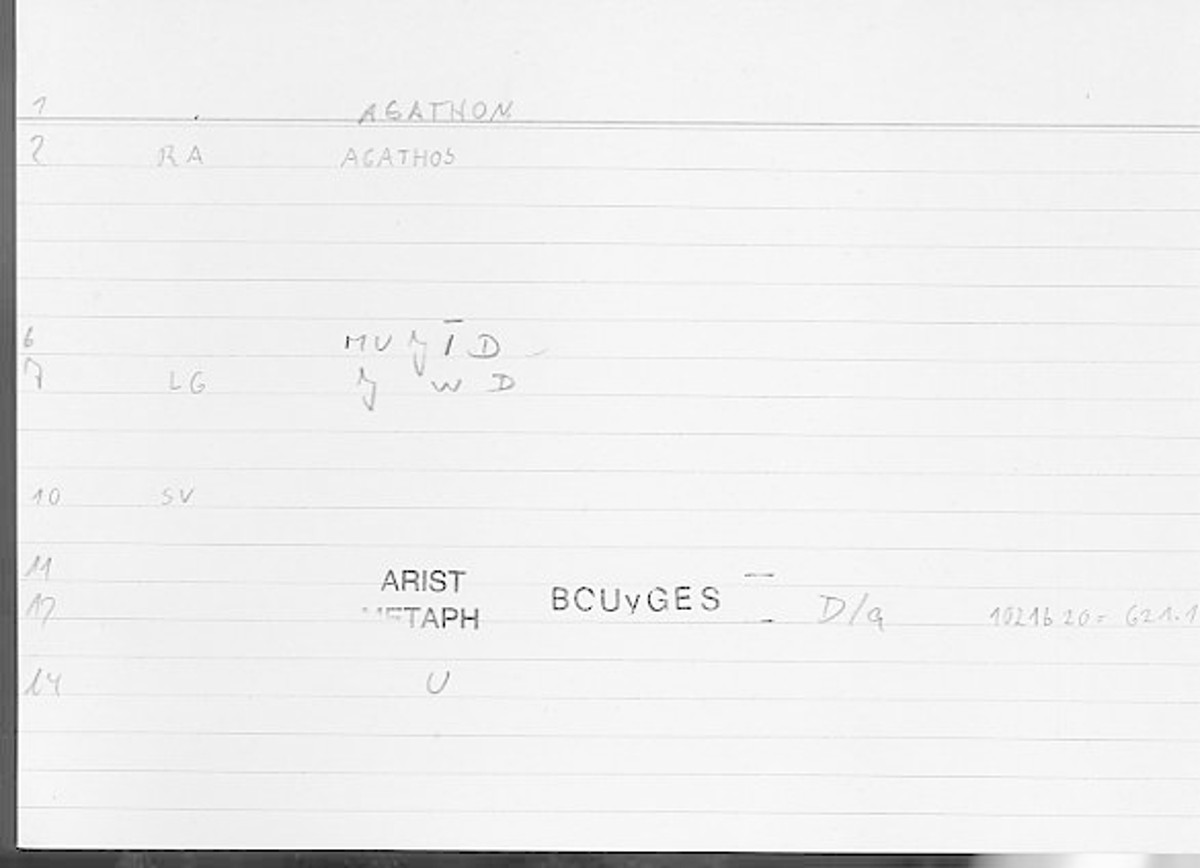 1 AGATHON
2 RA AGATHOS
6 MU j Ī D
7 LG j w D
10 SV
11 ARIST
12 METAPH BCUyGES D/a 1021b 20 = 621.1
14 U